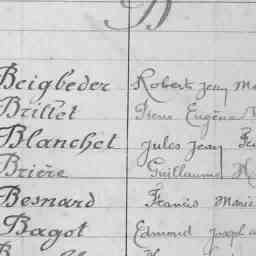 B
Beigbeder Robert Jean Ma
Brillet Irène Eugène
Blanchet Jules Jean
Brière Guillaume
Besnard Francis Marie
Bagot Edmond Joseph